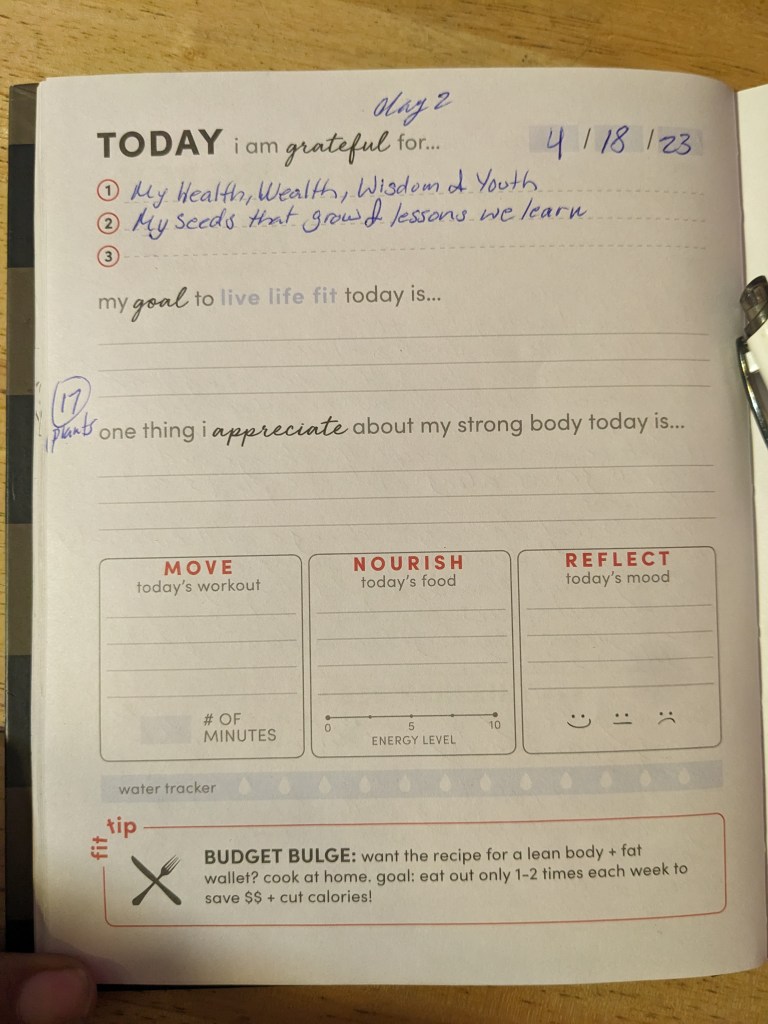 day 2
TODAY i am grateful for... 4 / 18 / 23
1 My Health, Wealth, Wisdom & Youth
2 My seeds that grow & lessons we learn
3
my goal to live life fit today is...
17
plants
one thing i appreciate about my strong body today is...
MOVE
today's workout
# OF
MINUTES
NOURISH
today's food
0 5 10
ENERGY LEVEL
REFLECT
today's mood
water tracker
fit tip
BUDGET BULGE: want the recipe for a lean body + fat
wallet? cook at home. goal: eat out only 1-2 times each week to
save $$ + cut calories!